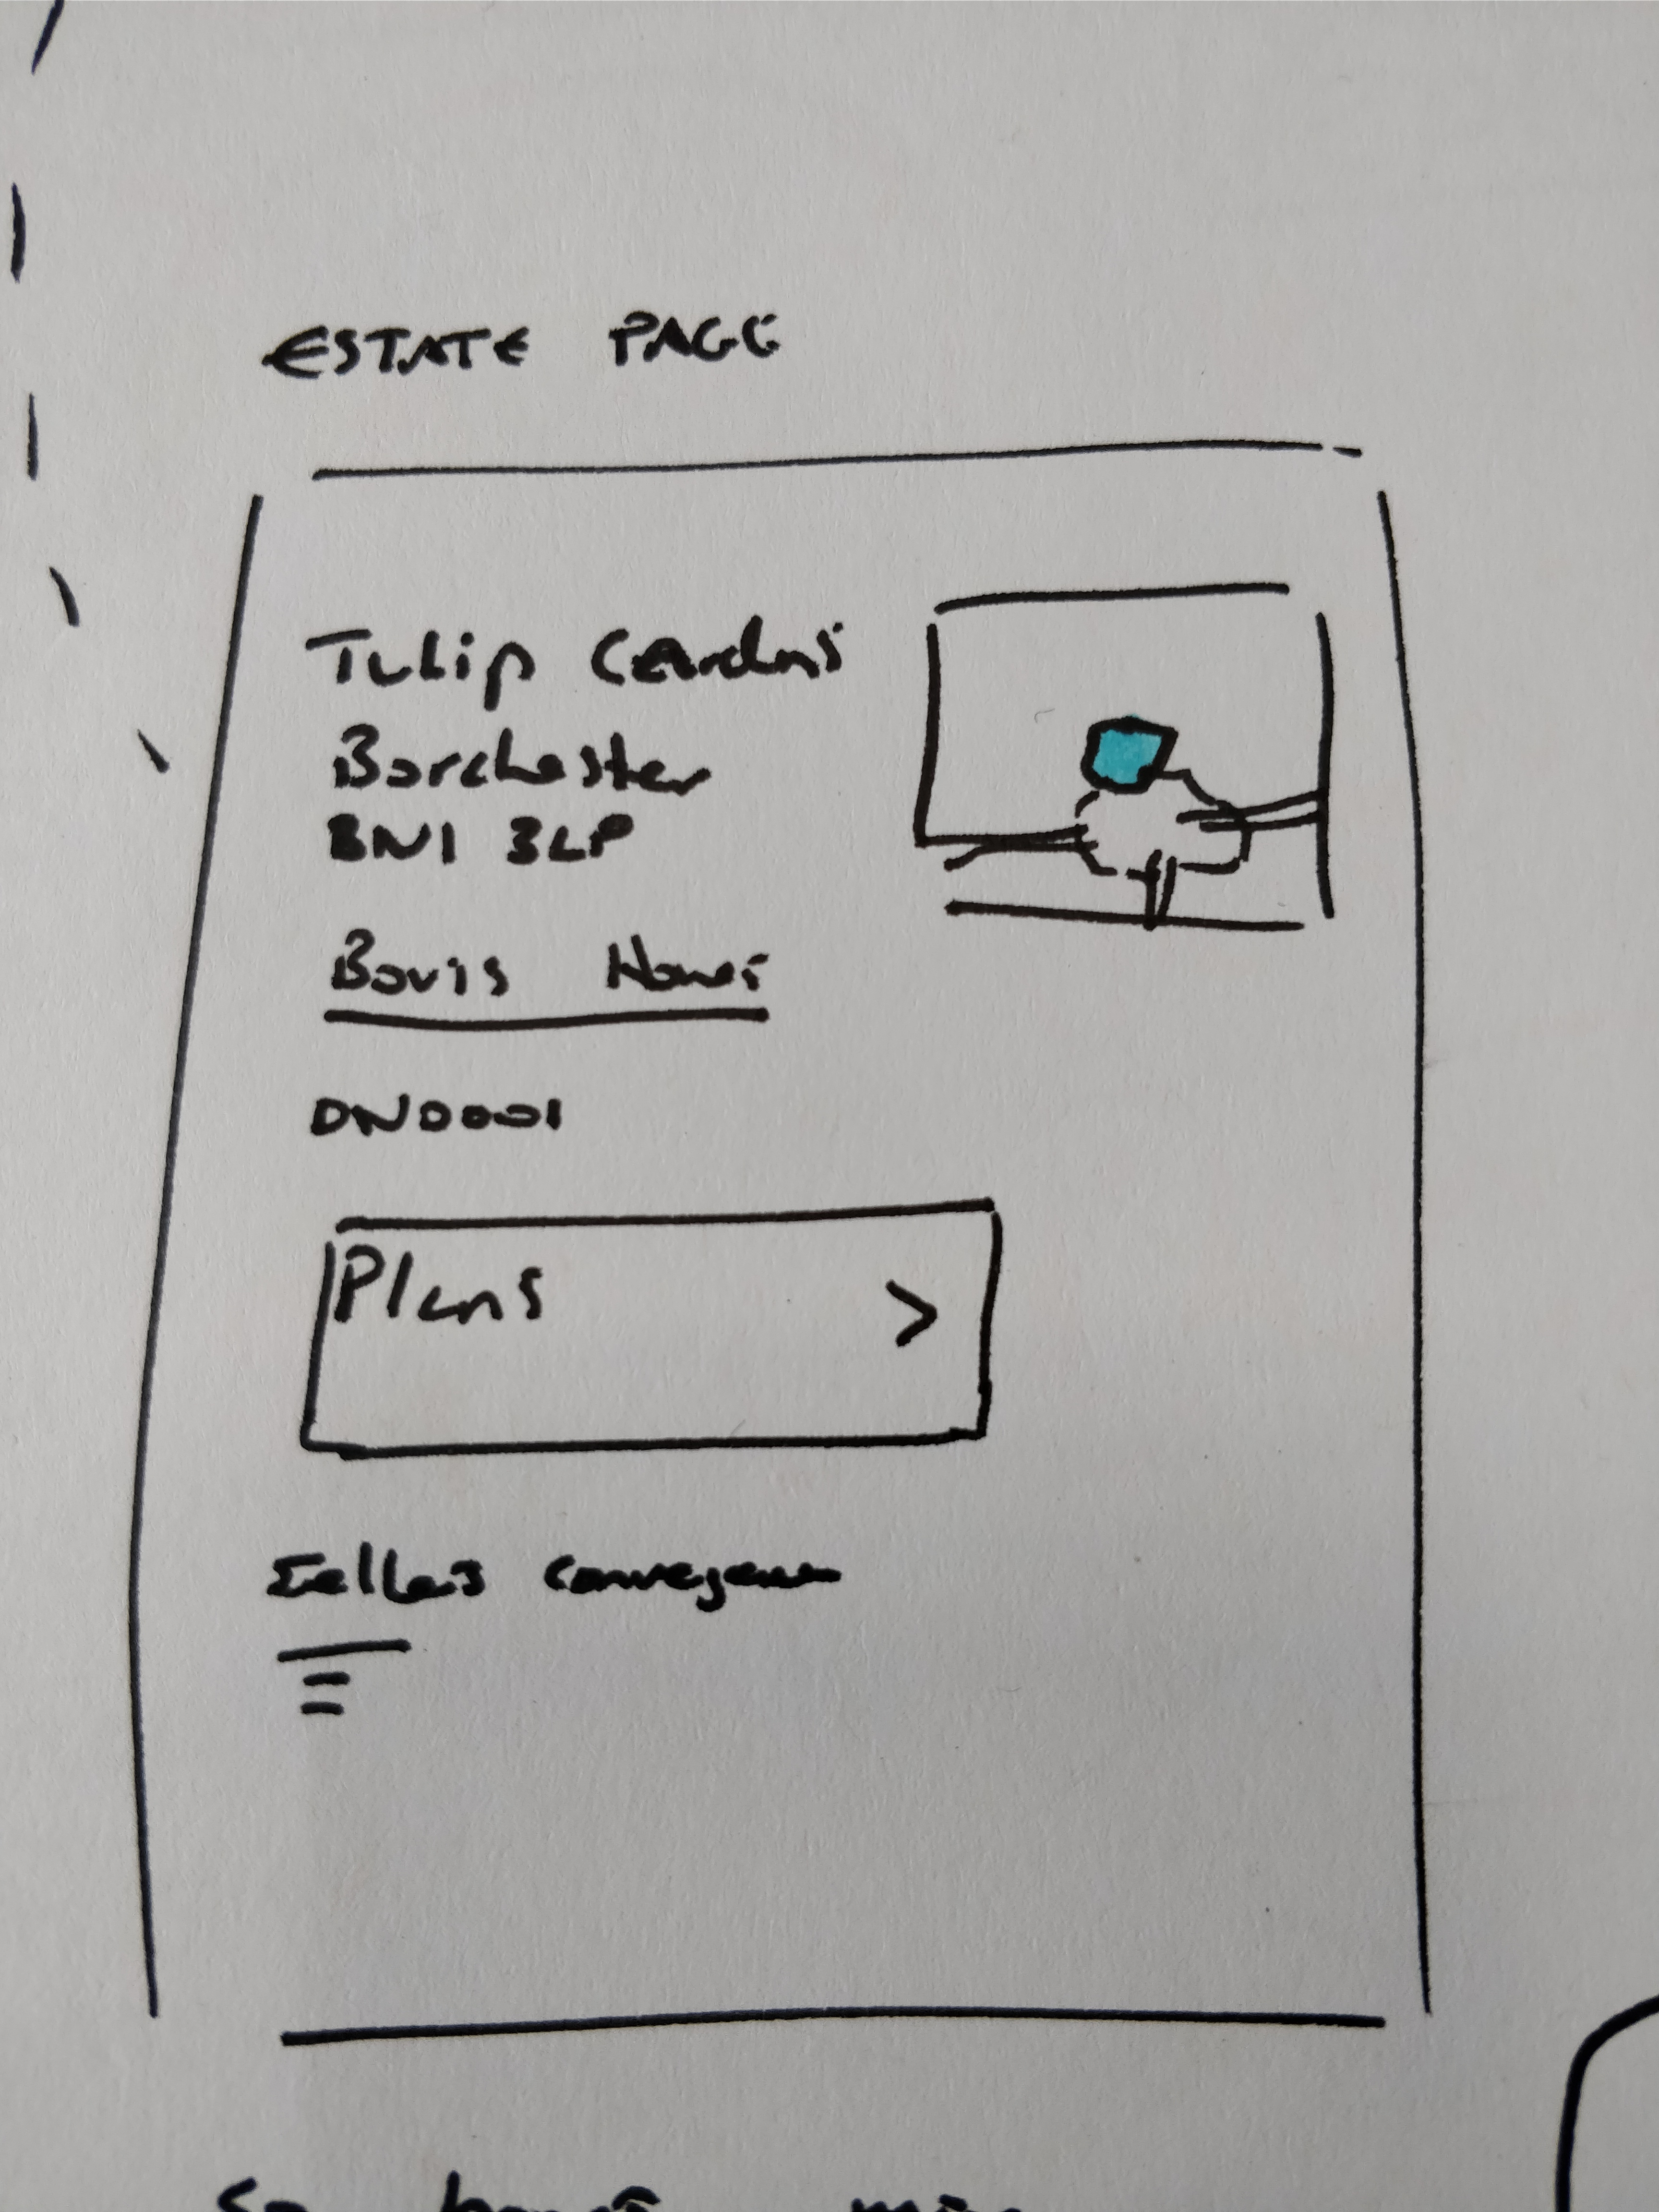 ESTATE PAGE
Tulip Gardens
Borchester
BN1 3LP
Bovis Homes
DN0001
Plans >
Sellers conveyancer